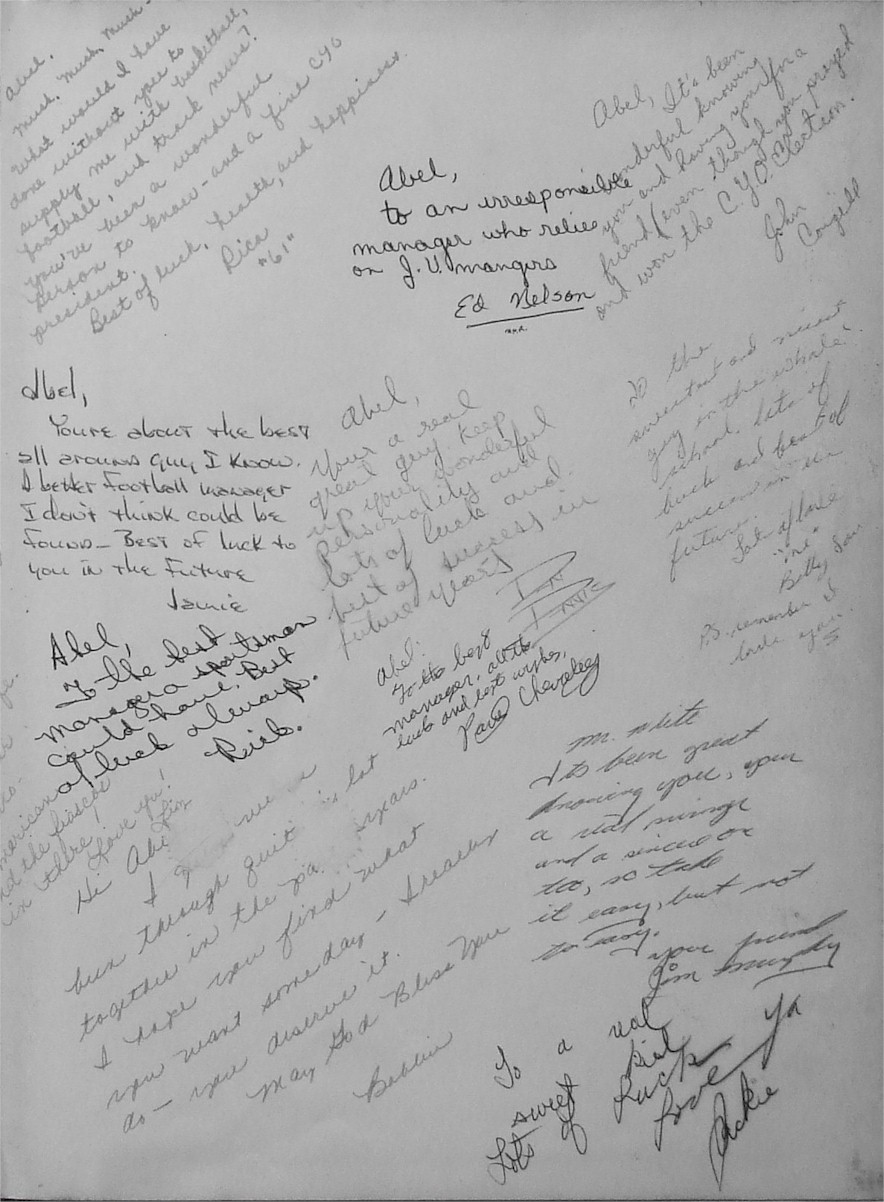 Abel,
Mush, Mush, Mush-
What would I have
done without you to
supply me with basketball,
football, and track news?
You've been a wonderful
person to know-and a fine CYO
president.
Best of luck, health, and happiness.
Rica
"61"
Abel,
to an irresponsible
manager who relies
on J.V. mangers
Ed Nelson
Abel, It's been
wonderful knowing
you and having you for a
friend (even though you prayed
and won the C.Y.O. election.
John
Abel,
Youre about the best
all around guy I know.
A better Football manager
I don't think could be
found- Best of luck to
you in the Future
Jamie
Abel,
Your a real
great guy. Keep
up your wonderful
personality and
lots of luck and
best of success in
future years
Abel:
To the best
manager, all the
luck and best wishes,
Paul Chevalley
To the
sweetest and nicest
guy in the whole
school, lots of
luck and best of
success in the
future.
Lots of Love
Billy
P.S. remember I
love you.
Abel,
To the best
manager a sportsman
could have. Best
of luck always.
Rick.
and the
in there!
Love ya!
Liz
Hi Abe
I
been through quit lot
together in the years.
I hope you find what
you want someday - I really
do - you deserve it.
May God Bless You
Mr. White
Its been great
knowing you, your
a real
and a
too, so take
it easy, but not
to easy.
your friend
Jim Murphy
To a real
sweet kid
Lots of Luck
Love Ya
Jackie